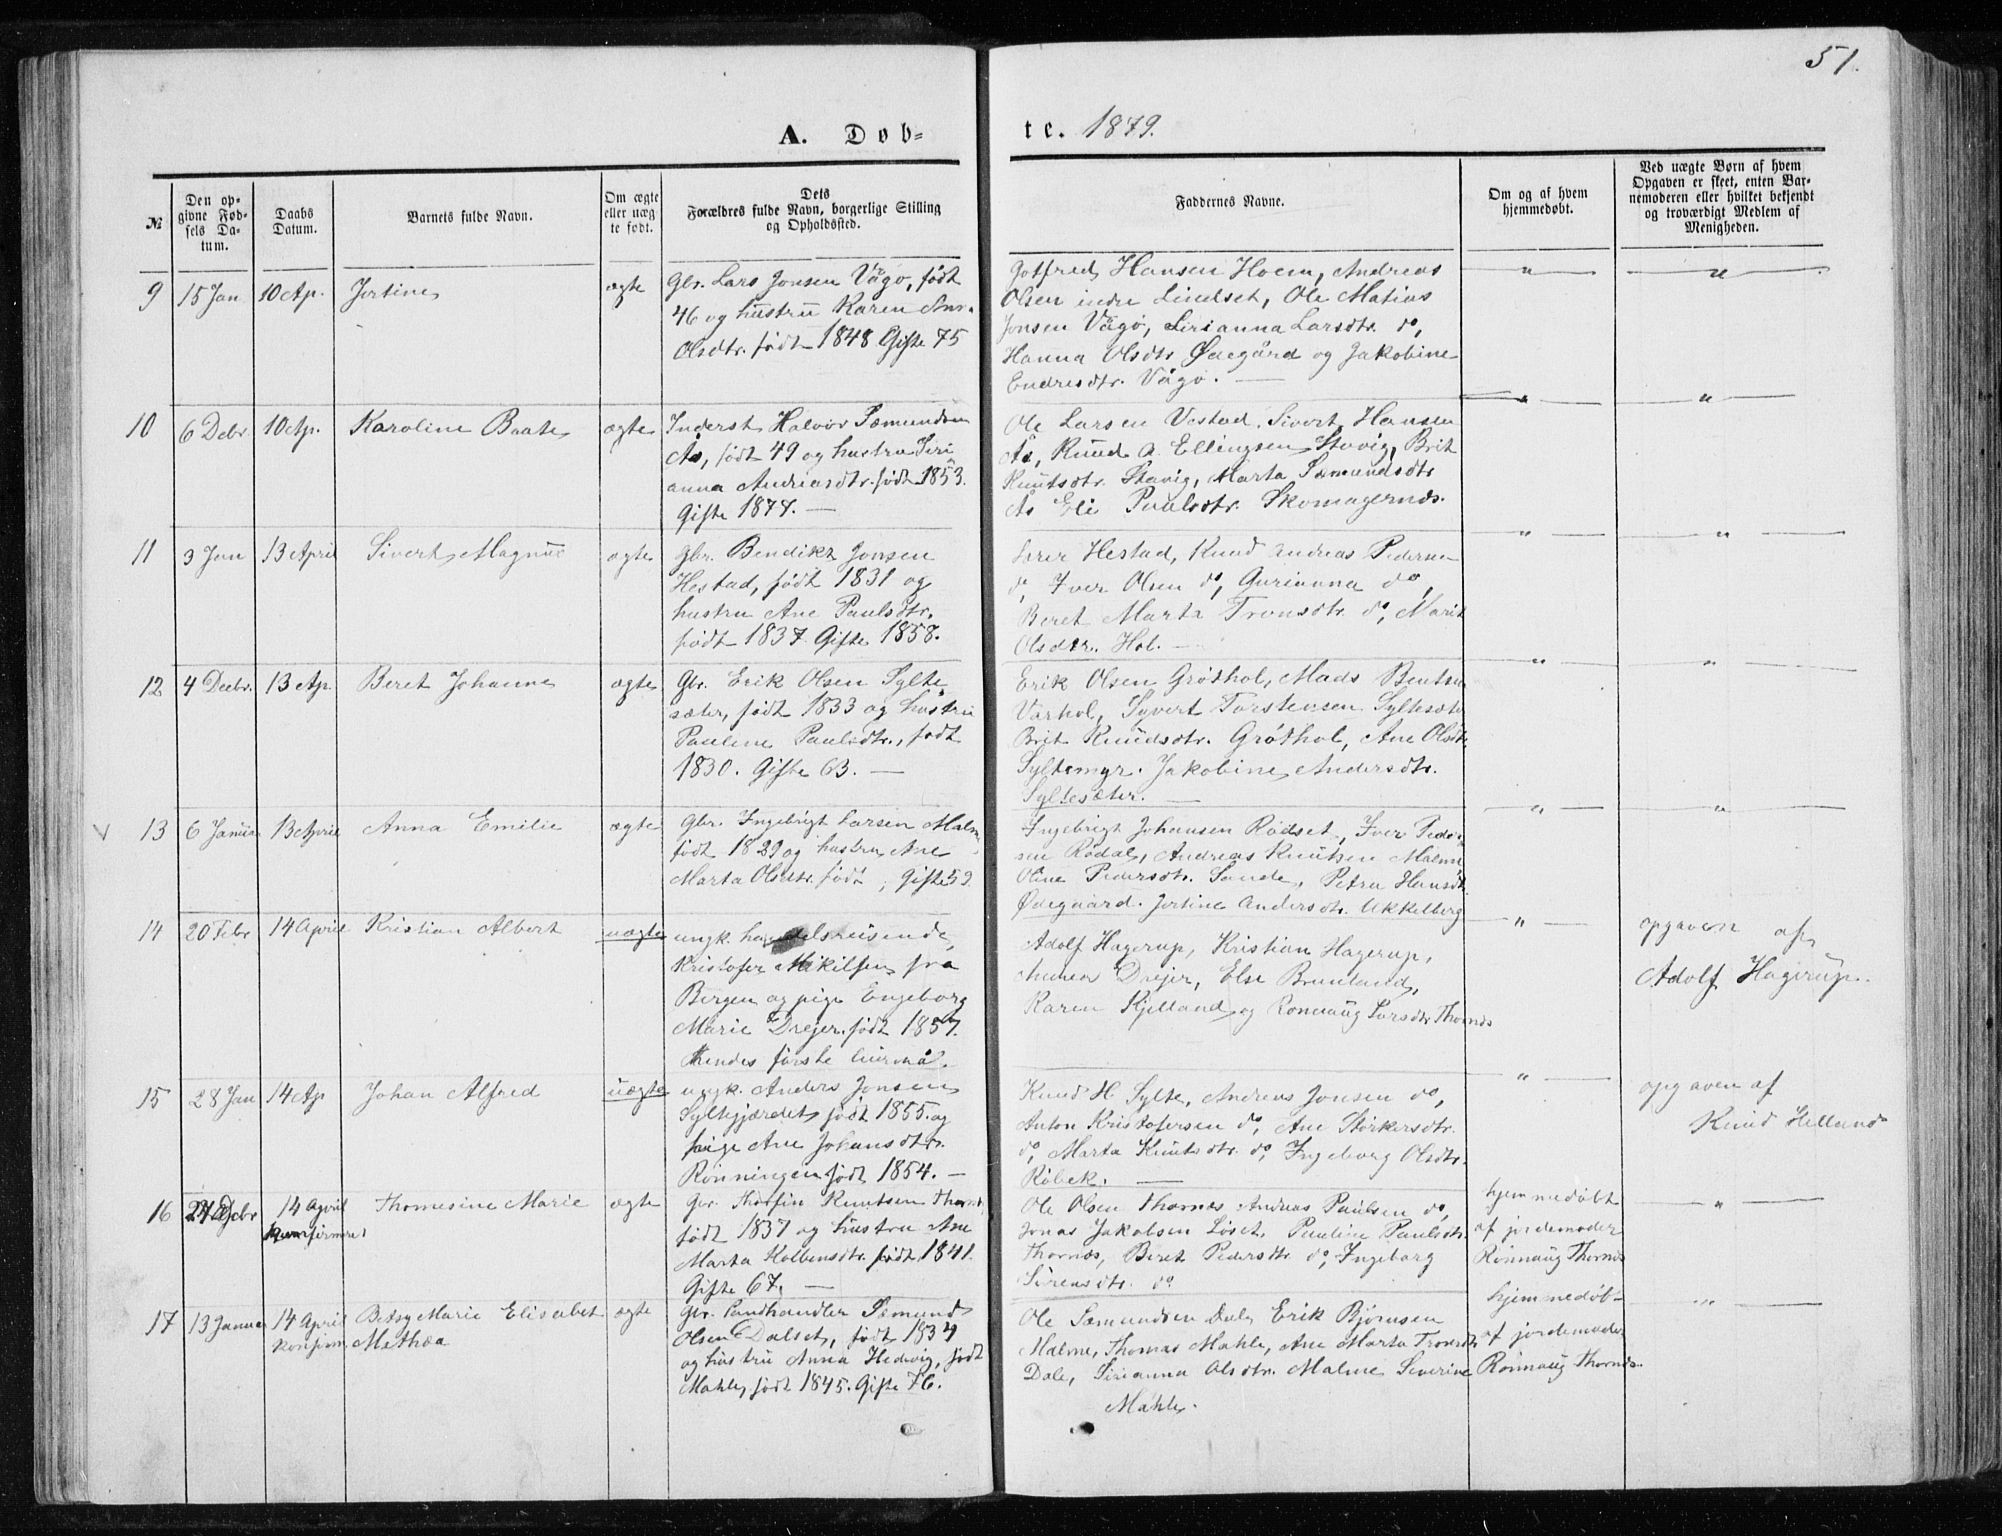 51.
A. Døb-
te. 1879.
№
Den op-
givne Fød-
sels Da-
tum.
Daabs
Datum.
Barnets fulde Navn.
Om ægte
eller uæg
te født.
Dets
Forældres fulde Navn, borgerlige Stilling
og Opholdssted.
Faddernes Navne.
Om og af hvem
hjemmedøbt.
Ved uægte Børn af hvem
Opgaven er skeet, enten Bar-
nemoderen eller hvilket bekjendt
og troværdigt Medlem af
Menigheden.
9 15 Jan 10 Ap. Jertine ægte
Gbr. Lars Jonsen Vågø, født
46 og hustru Karen
Olsdtr. født 1848 Gifte 75
Gotfred Hansen Hoem, Andreas
Olsen indre Lindset, Ole Matias
Jonsen Vågø, Sirianna Larsdtr. do,
Hanna Olsdtr Ødegård og Jakobine
Endresdtr. Vågø. —
" — " —
10 6 Debr. 10 Ap. Karoline Baate ægte
Inderst Halvor Sæmundsen
Ås, født 49 og hustru Siri
anna Andreasdtr. født 1853.
Gifte 1878. —
Ole Larsen Vestad, Sivert Hansen
Ås, Knud A. Ellingsen Stavig, Brit
Knutsdtr. Stavig, Marta Sæmundsdtr
Ås Eli Paulsdtr. Skomagernæs.
" — " —
11 3 Jan 13 April Sivert Magnus ægte
Gbr. Bendikt Jonsen
Hestad, født 1831 og
hustru Ane Paulsdtr.
født 1837. Gifte 1858.
Hestad, Knud Andreas Pedersen
do, Iver Olsen do, Gurianna do,
Beret Marta Tronsdtr. do, Marit
Olsdtr. Hol. —
" — " —
12 4 Decbr. 13 Ap. Beret Johanne ægte
Gbr. Erik Olsen Sylte
sæter, født 1833 og hustru
Pauline Paulsdtr., født
1830. Gifte 63. —
Erik Olsen Grøthol, Mads Bentsen
Varhol, Syvert Torstensen Syltesæter
Brit Knudsdtr. Grøthol, Ane Olsdtr
Syltemyr. Jakobine Andersdtr.
Syltesæter. —
" — " —
13 6 Januar 13 April Anna Emilie ægte
Gbr. Ingebrigt Larsen Malme
født 1829 og hustru Ane
Marta Olsdtr. født , Gifte 59.
Ingebrigt Johansen Rødset, Iver Peder
sen Rødal, Andreas Knutsen Malme
Oline Pedersdtr. Sande, Petra Hansdtr.
Ødegaard. Jertine Andersdtr. Ukkelberg
" — " —
14 20 Febr 14 April Kristian Albert uægte
ungk. handelsreisende,
Kristofer Mikilsen fra
Bergen og pige Engeborg
Marie Drejer. født 1857.
Hendes første leiermål.
Adolf Hagerup, Kristian Hagerup,
Drejer, Else Brunlund,
Karen Kjelland og Rønnaug Larsdtr Thornæs
" —
opgaven af
Adolf Hagerup.
15 28 Jan 14 Ap Johan Alfred uægte
ungk. Anders Jonsen
Syltegjærdet, født 1855. og
pige Ane Johansdtr.
Rønningen født 1854. —
Knud H Sylte, Andreas Jonsen do,
Anton Kristofersen do, Ane Størkersdtr.
do, Marta Knutsdtr. do, Ingeborg Olsdtr.
Røbek. —
" —
opgaven af
Knud Helland
16 Debr 14 April Thomesine Marie ægte
konfirmeret
Gbr. Thorfin Knutsen Thornæs,
født 1837 og hustru Ane
Marta Kolbensdtr. født 1841.
Gifte 67. —
Ole Olsen Thornæs Andreas Paulsen do,
Jonas Jakobsen Løset. Pauline Paulsdtr.
Thornæs, Beret Pedersdtr. do, Ingeborg
Sørensdtr. do
hjemmedøbt
af jordemoder
Rønnaug Thornæs
— " —
17 13 Januar 14 April Betsy Marie Elisabet ægte
konfirm. Mathea
Gbr. Landhandler Sæmund
Olsen Dalset, født 1834
og hustru Anna Hedvig, født
Mahle, født 1845. Gifte 76.
Ole Sæmundsen Dale, Erik Bjørnsen
Malme, Thomas Mahle, Ane Marta Tronsdtr
Dale, Sirianna Olsdtr. Malme Severine
Mahle.
hjemmedøbt
af jordemoder
Rønnaug Thornæs.
— " —